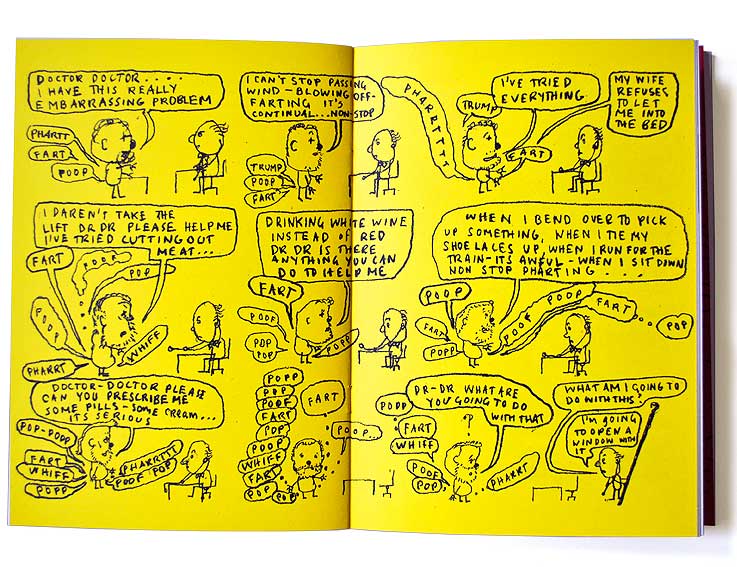 DOCTOR DOCTOR....
I HAVE THIS REALLY
EMBARRASSING PROBLEM
PHARTT
FART
POOP
I CAN'T STOP PASSING
WIND - BLOWING OFF-
FARTING IT'S
CONTINUAL...NON-STOP
TRUMP
POOP
FART
PHARRTTTT
TRUMP
I'VE TRIED
EVERYTHING
FART
MY WIFE
REFUSES
TO LET
ME INTO
THE BED
I DAREN'T TAKE THE
LIFT DR DR PLEASE HELP ME
I'VE TRIED CUTTING OUT
MEAT...
FART
POOP
POP
POOP
WHIFF
PHARRT
DRINKING WHITE WINE
INSTEAD OF RED
DR DR IS THERE
ANYTHING YOU CAN
DO TO HELP ME
FART
POOF
POP
POP
POPP
WHEN I BEND OVER TO PICK
UP SOMETHING, WHEN I TIE MY
SHOE LACES UP, WHEN I RUN FOR THE
TRAIN-IT'S AWFUL - WHEN I SIT DOWN
NON STOP PHARTING....
POOP
FART
POPP
POOF
POOP
FART
POP
DOCTOR-DOCTOR PLEASE
CAN YOU PRESCRIBE ME
SOME PILLS-SOME CREAM...
ITS SERIOUS
POP-POPP
FART
WHIFF
POPP
PHARRTTT
POOF-POP
POPP
POP
POOF
FART
POP
POOP
WHIFF
FART
POP
POP
FART
POOP..
DR-DR WHAT ARE
YOU GOING TO DO
WITH THAT
POPP
FART
WHIFF
POOF
POP
?
PHARRT
WHAT AM I GOING TO
DO WITH THIS?
I'M GOING
TO OPEN A
WINDOW WITH
IT